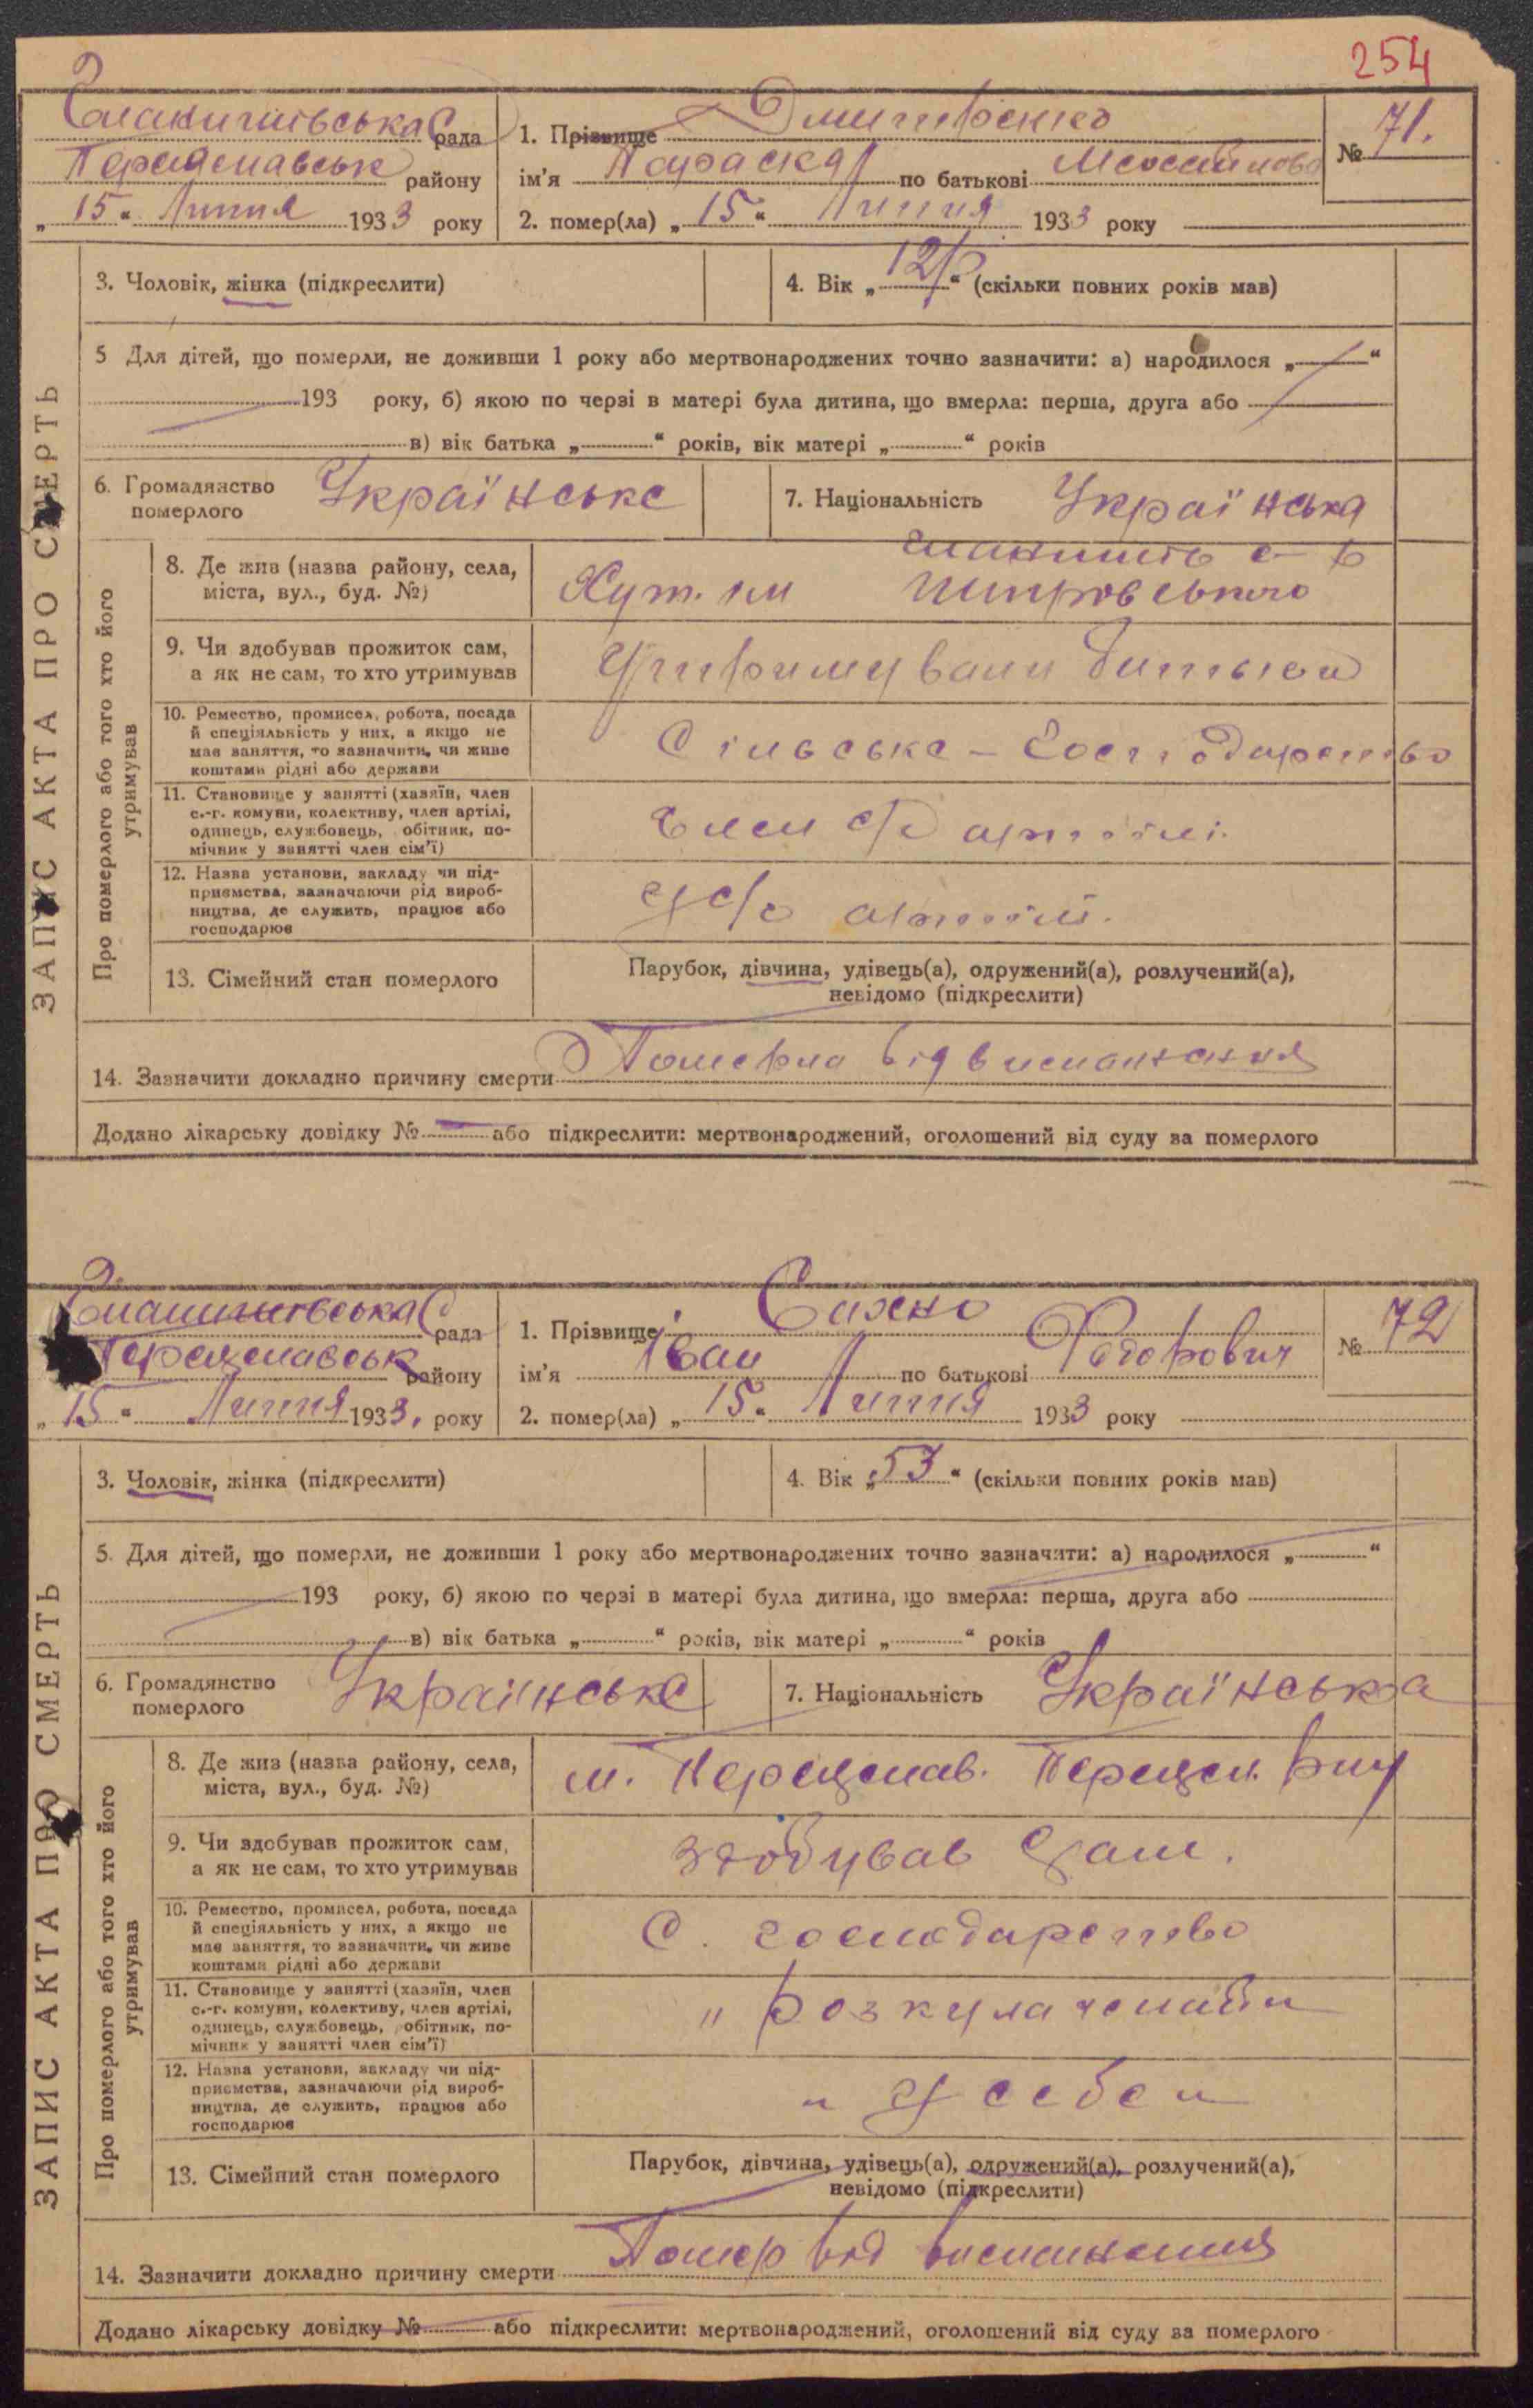 254
рада 1. Прізвище Дмитренко № 71.
Переяславськ району ім'я Параска по батькові
„ 15 “ Липня 1933 року 2. помер(ла) „ 15 “ Липня 1933 року
3. Чоловік, жінка (підкреслити) 4. Вік „ 12 “ (скільки повних років мав)
5 Для дітей, що померли, не доживши 1 року або мертвонароджених точно зазначити: а) народилося „ “
193 року, б) якою по черзі в матері була дитина, що вмерла: перша, друга або
в) вік батька „ “ років, вік матері „ “ років
6. Громадянство Українське 7. Національність Українська
померлого
8. Де жив (назва району, села,
міста, вул., буд. №) Хут. ім Петровського
9. Чи здобував прожиток сам,
а як не сам, то хто утримував Утримували батьки
10. Ремество, промисел, робота, посада
й спеціяльність у них, а якщо не
має заняття, то зазначити, чи живе
коштами рідні або держави
Сільське – Господарство
11. Становище у занятті (хазяїн, член
с.-г. комуни, колективу, член артілі,
одинець, службовець, робітник, по-
мічник у занятті член сім'ї)
Член с/г артілі.
12. Назва установи, закладу чи під-
приємства, зазначаючи рід вироб-
ництва, де служить, працює або
господарює
У с/г артілі.
13. Сімейний стан померлого Парубок, дівчина, удівець(а), одружений(а), розлучений(а),
невідомо (підкреслити)
14. Зазначити докладно причину смерти Померла від виснаження
Додано лікарську довідку № або підкреслити: мертвонароджений, оголошений від суду за померлого
ЗАПИС АКТА ПРО СМЕРТЬ
Про померлого або того хто його
утримував
рада 1. Прізвище Сахно № 72
Переяславськ району ім'я Іван по батькові Федорович
„ 15 “ Липня 1933. року 2. помер(ла) „ 15 “ Липня 1933 року
3. Чоловік, жінка (підкреслити) 4. Вік „ 53 “ (скільки повних років мав)
5. Для дітей, що померли, не доживши 1 року або мертвонароджених точно зазначити: а) народилося „ “
193 року, б) якою по черзі в матері була дитина, що вмерла: перша, друга або
в) вік батька „ “ років, вік матері „ “ років
6. Громадянство Українське 7. Національність Українська
померлого
8. Де жив (назва району, села,
міста, вул., буд. №) м. Переяслав. Переясл. р-ну
9. Чи здобував прожиток сам,
а як не сам, то хто утримував здобував сам.
10. Ремество, промисел, робота, посада
й спеціяльність у них, а якщо не
має заняття, то зазначити, чи живе
коштами рідні або держави
С. господарство
11. Становище у занятті (хазяїн, член
с.-г. комуни, колективу, член артілі,
одинець, службовець, робітник, по-
мічник у занятті член сім'ї)
" розкулачений "
12. Назва установи, закладу чи під-
приємства, зазначаючи рід вироб-
ництва, де служить, працює або
господарює
" у себе "
13. Сімейний стан померлого Парубок, дівчина, удівець(а), одружений(а), розлучений(а),
невідомо (підкреслити)
14. Зазначити докладно причину смерти Помер від виснаження
Додано лікарську довідку № або підкреслити: мертвонароджений, оголошений від суду за померлого
ЗАПИС АКТА ПРО СМЕРТЬ
Про померлого або того хто його
утримував